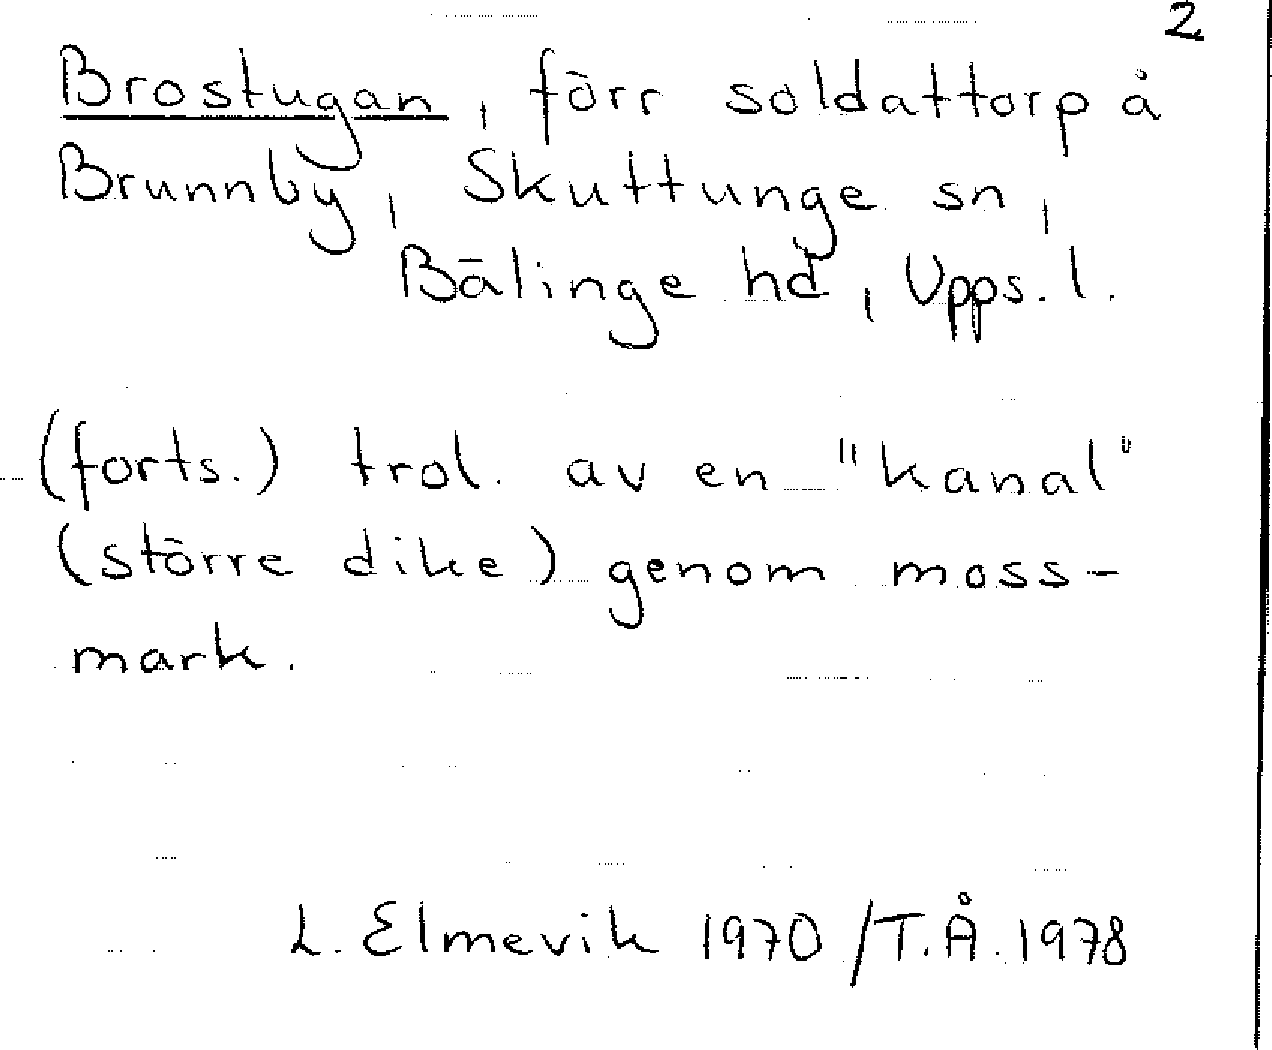 2
Brostugan, förr soldattorp å
Brunnby, Skuttunge sn,
Bälinge hd, Upps. l.
(forts.) trol. av en "kanal"
(större dike) genom moss-
mark.
L. Elmevik 1970 /T.Å. 1978